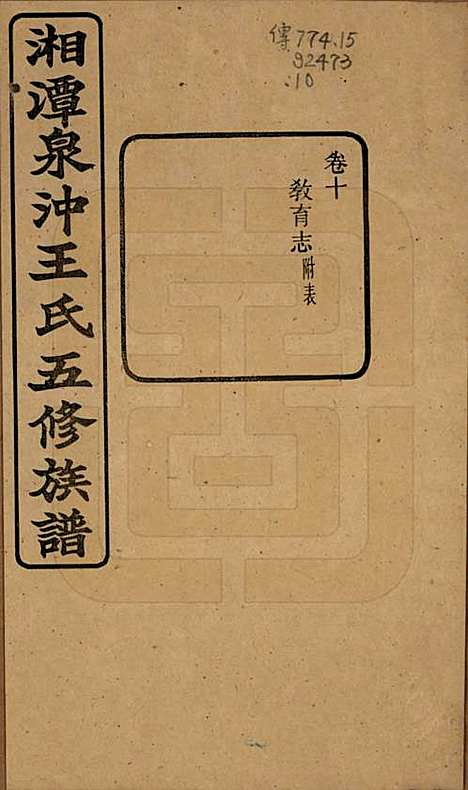 傳774.15
92473
:10
卷十
敎育志附表
湘潭泉沖王氏五修族譜